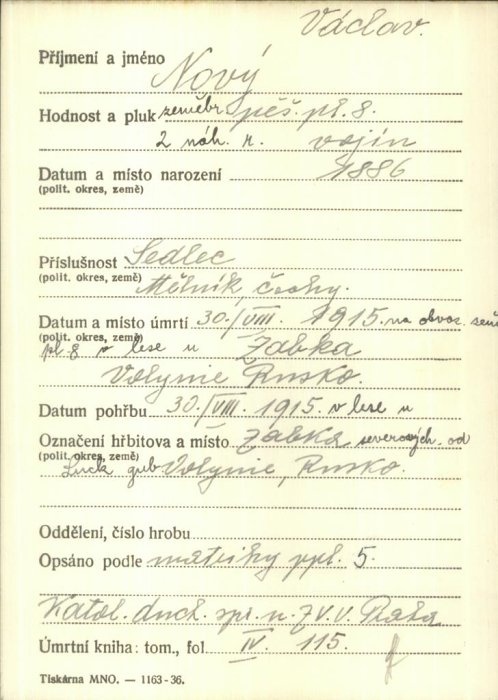 Václav.
Příjmení a jméno Nový
Hodnost a pluk zeměbr. pěš. pl. 8.
2 náh. r. vojín
Datum a místo narození 1886
(polit. okres, země)
Příslušnost Sedlec
(polit. okres, země) Mělník, Čechy.
Datum a místo úmrtí 30./VIII. 1915. na obvaz. zem
(polit. okres, země)
pl. 8 v lese u Zabka
Volynie Rusko.
Datum pohřbu 30./VIII. 1915. v lese u
Označení hřbitova a místo Zabka severových. od
(polit. okres, země)
Luck gub Volynie, Rusko.
Oddělení, číslo hrobu
Opsáno podle matriky ppl. 5.
Katol. duch. spr. n. ZV.V. Praha
Úmrtní kniha: tom., fol. IV. 115.
Tiskárna MNO. — 1163-36.